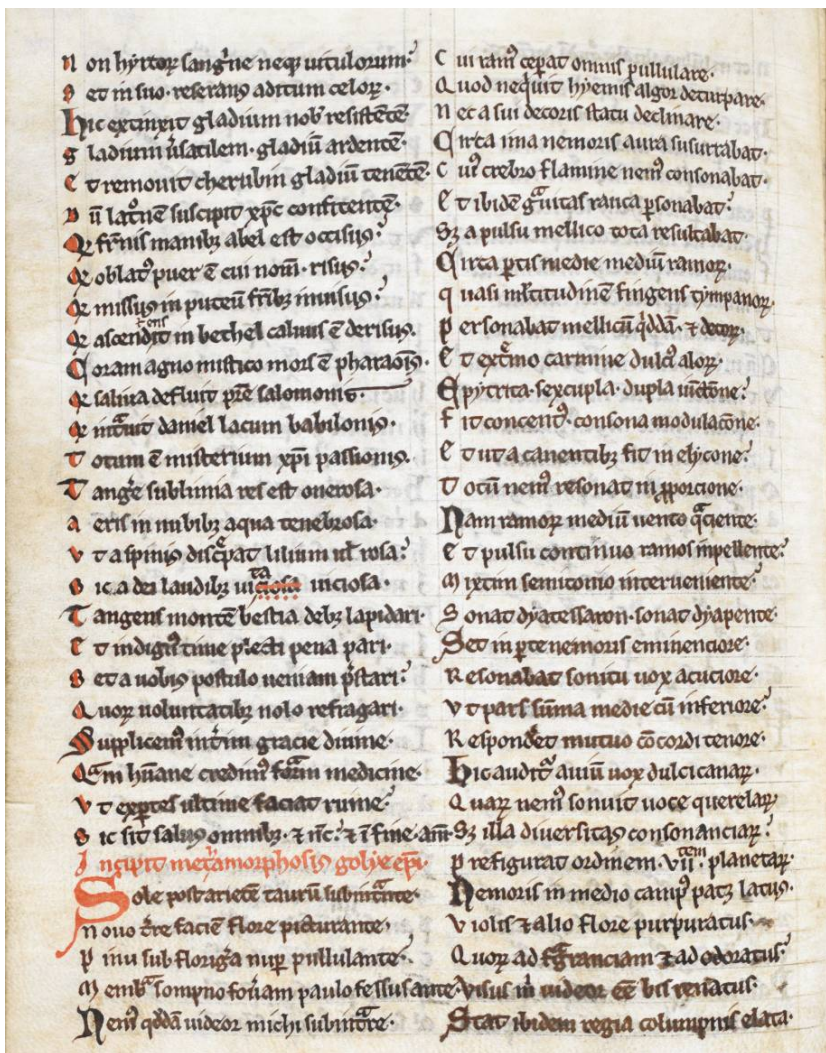 Non hyrcoꝝ sangͥne neqꝫ uitulorum.
Set in suo reserans aditum celoꝝ.
Hic extinxit gladium nob̛ resistētē.
Gladium u̾satilem. gladiū ardentē.
Et remouit cherubin gladiū tenētē.
Dū latͦnē suscipit xp̄c confitentē.
Qꝛ fr̄nis manibꝫ abel est occisus.
Qꝛ oblatꝰ puer ē cui nom̄ risus.
Qꝛ missus in puteū fr̄ibꝫ inuisus.
Qꝛ ascendit ens in bethel caluus ē derisus.
Coram agno mistico mors ē pharaonis.
Qꝛ saliua defluit pr̄e salomonis.
Qꝛ intͣuit daniel lacum babilonis.
Totum ē misterium xp̄i passionis.
Tang̾e sublimia res est onerosa.
Aeris in nubibꝫ aqua tenebrosa.
Vt a spinis discͤpat lilium ul̾ rosa.
Sic a dei laudibꝫ uiciosa ta uiciosa.
Tangens montē bestia debꝫ lapidari.
Et indignͥ tiue plecti pena pari.
Set a uobis postulo ueniam p̄stari.
Quoꝝ uoluntatibꝫ nolo refragari.
Supplicemꝰ int̾im gracie diuine.
Qͣm hūane credimꝰ form̄ medicine.
Vt exꝑtes ultime faciat ruine.
Sic sit salus omnibꝫ. ⁊ nc̄. ⁊ ī fine. am̄.
Incipit metͣamorphosis golye ep̄i.
Sole post arietē taurū subintͣnte.
Nouo t̾re faciē flore picturante.
Pinu sub florig̾a nuꝑ pullulante.
Membͣ sompno foueram paulo fessus ante.
Nemꝰ qd̄dā uideor michi subint̾re.
Cui ramꝰ cep̾at omnis pullulare.
Quod neqͥuit hyemis algor deturpare.
Nec a sui decoris statu declinare.
Circa ima nemoris aura susurrabat.
Cuiꝰ crebro flamine nemꝰ consonabat.
Et ibidē gͣuitas rauca ꝑsonabat.
Sꝫ a pulsu mellico tota resultabat.
Circa ꝑtis medie mediū ramoꝝ.
Quasi ml̾titudinē fingens tympanoꝝ.
Personabat mellicū qͦddā. ⁊ decoꝝ.
Et extͤmo carmine dulciꝰ aloꝝ.
Epytrita. sexcupla. dupla iūctōne.
Fit concentꝰ. consona modulacōne.
Et ut a canentibꝫ fit in elycone.
Totū nemꝰ resonat in ꝓporcione.
Nam ramoꝝ mediū uento qͣciente.
Et pulsu continuo ramos inpellente.
Mixtim semitonio interueniente.
Sonat dyatessaron. sonat dyapente.
Set in ꝑte nemoris eminenciore.
Resonabat sonitu uox acuciore.
Vt pars sūma medie cū inferiore.
Respondet mutuo cōcordi tenore.
Hic auditͬ auiū uox dulcicanaꝝ.
Quaꝝ nemꝰ sonuit uoce querelaꝝ.
Sꝫ illa diuersitas consonanciaꝝ.
Prefigurat ordinem. vii. tem planetaꝝ.
Nemoris in medio campꝰ patꝫ latus.
Violis ⁊ alio flore purpuratus.
Quoꝝ ad fgͣranciam ⁊ ad odoratus.
Visus m̥ uideor eē bis renatus.
Stat ibidem regia columpnis elata.